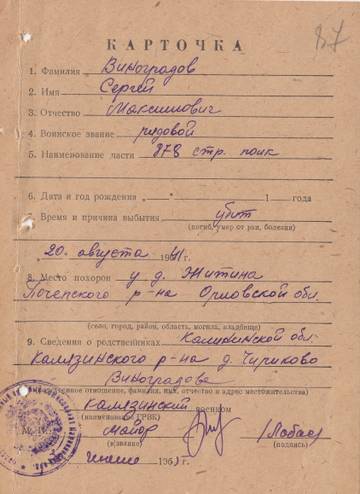 87
КАРТОЧКА
1. Фамилия Виноградов
2. Имя Сергей
3. Отчество Максимович
4. Воинское звание рядовой
5. Наименование части 878 стр. полк
6. Дата и год рождения „ “ 1 года
7. Время и причина выбытия убит
(погиб, умер от ран, болезни)
„20„ августа 1941г.
8. Место похорон у д. Житина
Почепского р-на Орловской обл.
(село, город, район, область, могила, кладбище)
9. Сведения о родственниках Калининской обл.
Калязинского р-на д. Чириково
Виноградова
отношение, фамилия, имя, отчество и адрес местожительства)
Калязинский военком
(наименование РВК)
майор
(звание) (подпись)
июня 1961 г.